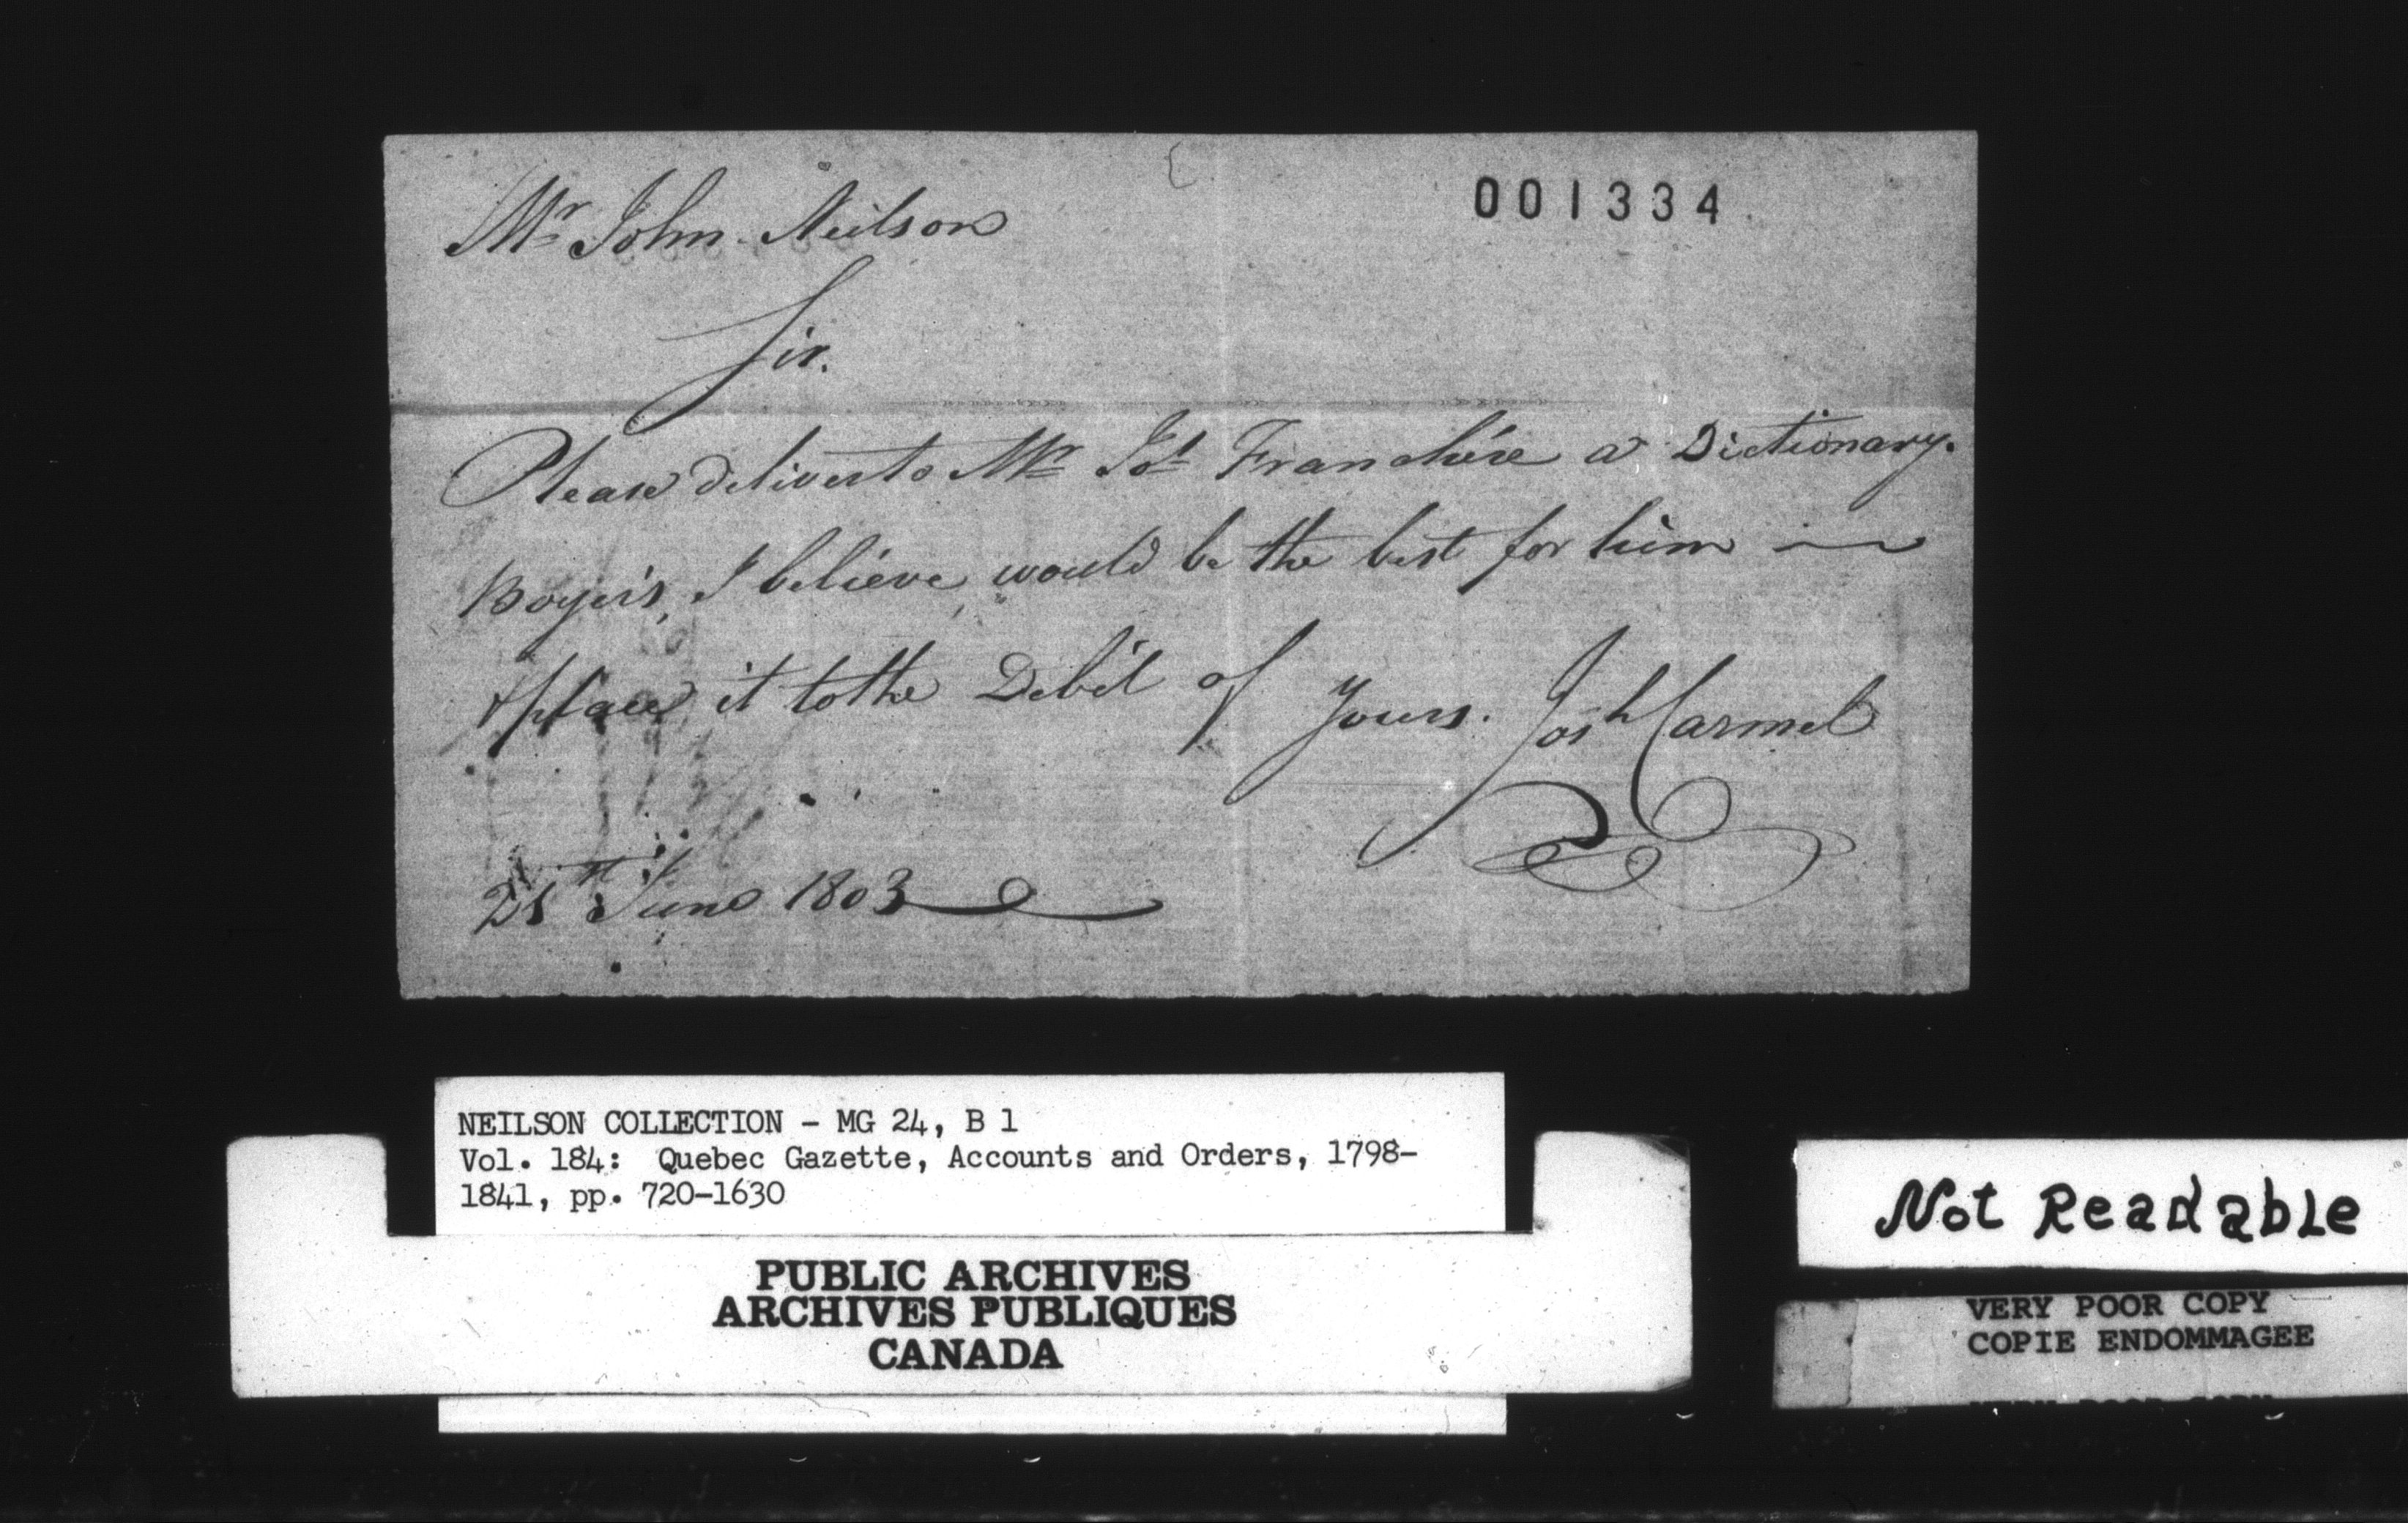 001334
Mr John Neilson
Sir.
Please deliver to Mr Jos Franchére a Dictionary.
Boyer's, I believe would be the best for him
& place it to the Debit of Yours. Josh Carmel
June 1803
NEILSON COLLECTION - MG 24, B 1
Vol. 184: Quebec Gazette, Accounts and Orders, 1798-
1841, pp. 720-1630
PUBLIC ARCHIVES
ARCHIVES PUBLIQUES
CANADA
Not Readable
VERY POOR COPY
COPIE ENDOMMAGEE